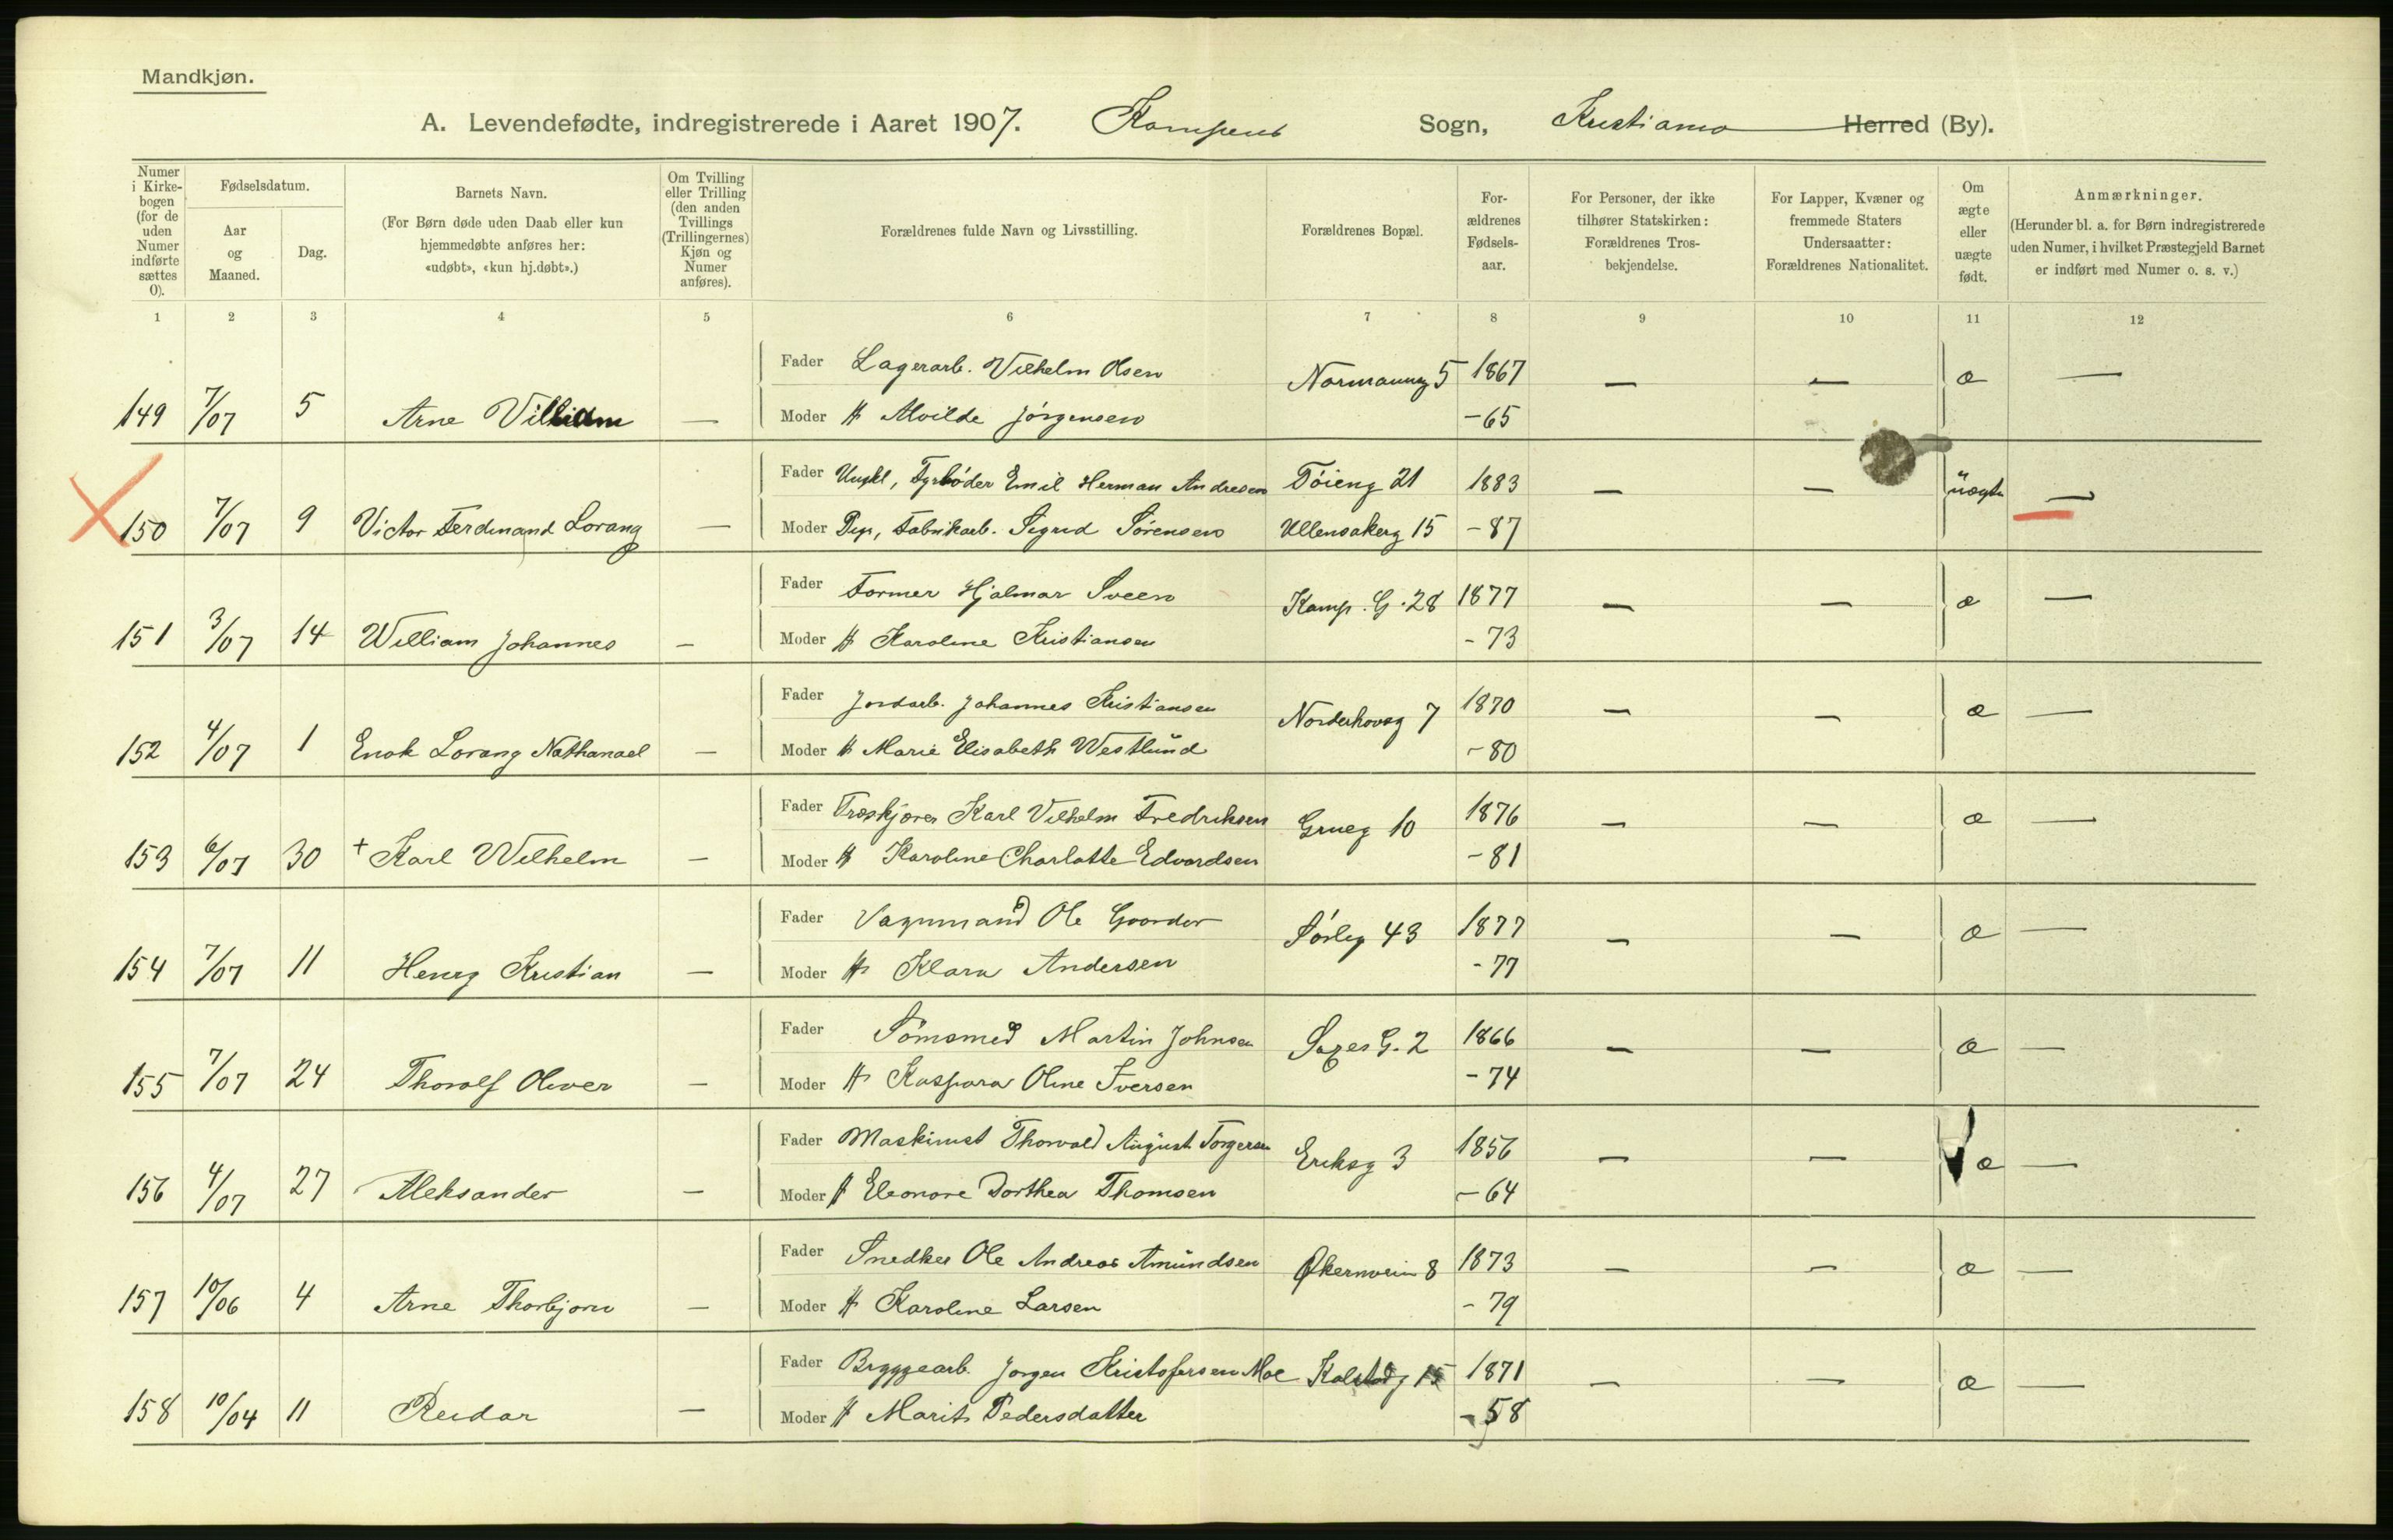 Mandkjøn.
A. Levendefødte, indregistrerede i Aaret 1907. Kampens Sogn, Kristiania Herred (By).
Numer i Kirkebogen (for de uden Numer indførte sættes 0).
Fødselsdatum.
Aar og Maaned.
Dag.
Barnets Navn.
(For Børn døde uden Daab eller kun hjemmedøbte anføres her: «udøbt», «kun hj.døbt».)
Om Tvilling eller Trilling (den anden Tvillings (Trillingernes) Kjøn og Numer anføres).
Forældrenes fulde Navn og Livsstilling.
Forældrenes Bopæl.
Forældrenes Fødselsaar.
For Personer, der ikke tilhører Statskirken: Forældrenes Trosbekjendelse.
For Lapper, Kvæner og fremmede Staters Undersaatter: Forældrenes Nationalitet.
Om ægte eller uægte født.
Anmærkninger.
(Herunder bl. a. for Børn indregistrerede uden Numer, i hvilket Præstegjeld Barnet er indført med Numer o. s. v.)
1 2 3 4 5 6 7 8 9 10 11 12
Fader Lagerarb. Vilhelm Olsen Normanng 5 1867 — — æ —
149 7/07 5 Arne Villiam — Moder H Alvilde Jörgensen -65
Fader Ungkl, Fyrböder Emil Herman Andresen Töieng 21 1883 — — uægte —
150 7/07 9 Victor Ferdinand Lorang — Moder Pige, Fabrikarb. Sigrid Sörensen Ullensakerg 15 -87
Fader Former Hjalmar Sveen Kamp. G. 28 1877 — — æ —
151 3/07 14 William Johannes — Moder H Karoline Kristiansen -73
Fader Jordarb. Johannes Kristiansen Norderhovsg 7 1870 — — æ —
152 4/07 1 Enok Lorang Nathanael — Moder H Marie Elisabeth Westlund -80
Fader Træskjærer Karl Vilhelm Fredriksen Grueg 10 1876 — — æ —
153 6/07 30 + Karl Wilhelm — Moder H Karoline Charlotte Edvardsen -81
Fader Vognmand Ole Sörleg 43 1877 — — æ —
154 7/07 11 Henry Kristian — Moder H Klara Andersen -77
Fader Sömsmed Martin Johnsen Saxes G. 2 1866 — — æ —
155 7/07 24 Thorolf Oliver — Moder H Kaspara Oline Iversen -74
Fader Maskinist Thorvald August Torgersen Eriksg 3 1856 — — æ —
156 4/07 27 Aleksander — Moder H Eleonore Dorthea Thomsen -64
Fader Snedker Ole Andreas Amundsen Økernvein 8 1873 — — æ —
157 10/06 4 Arne Thorbjørn — Moder H Karoline Larsen -79
Fader Bryggearb. Jørgen Kristofersen Moe Kolstadg 15 1871 — — æ —
158 10/04 11 Reidar — Moder H Marit Pedersdatter -58